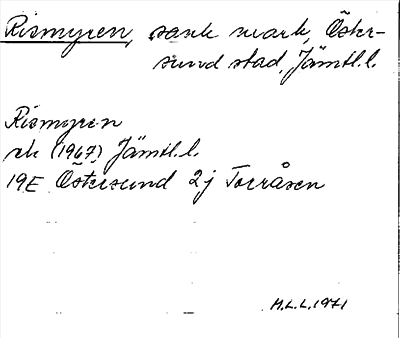 Rismyren, sank mark, Öster-
sund stad, Jämtl.l.
Rismyren
ek (1967) Jämtl.l.
19E Östersund 2j Torråsen
M.L.L. 1971